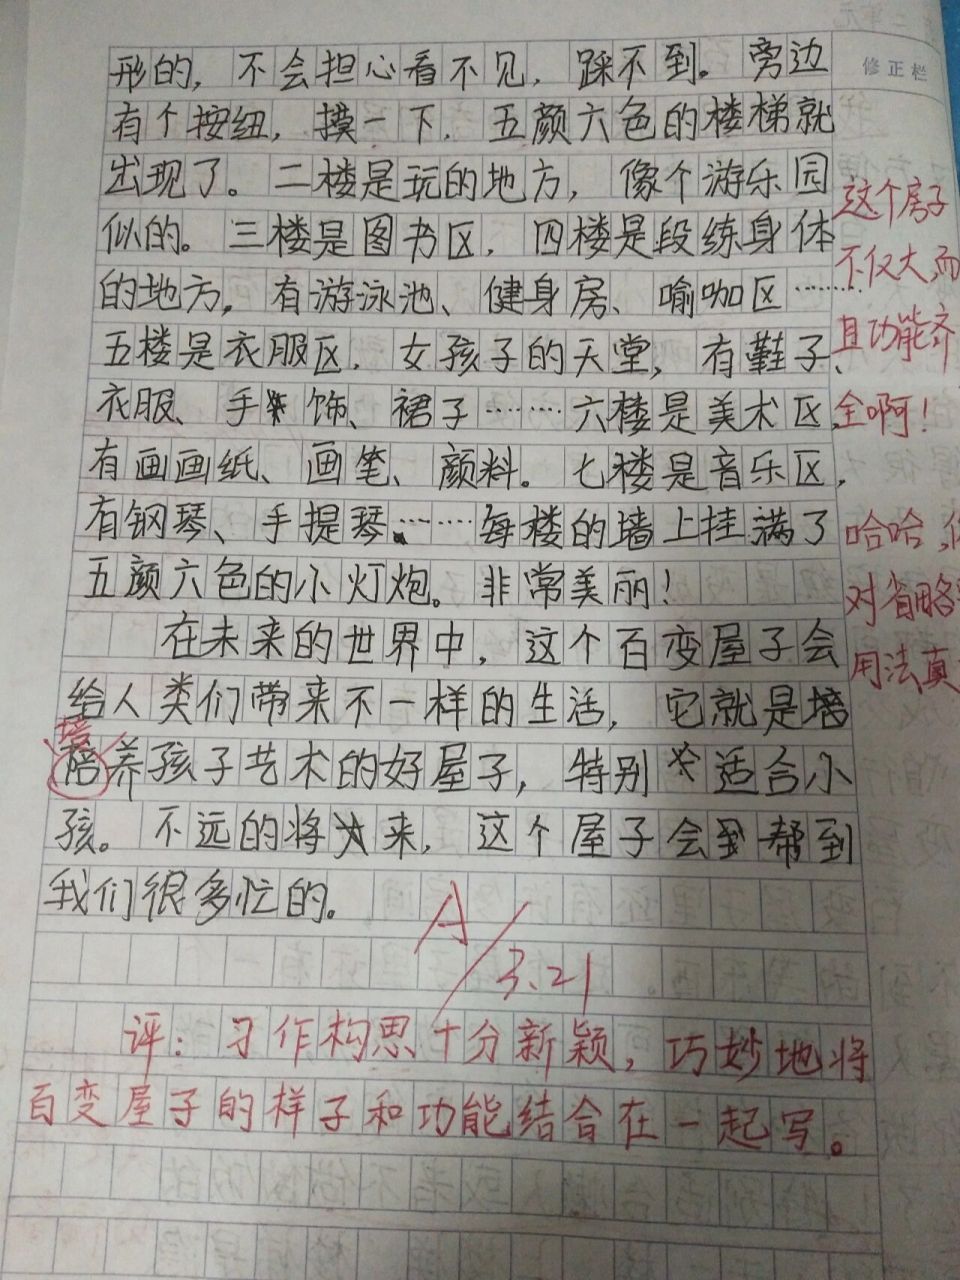 修正栏
形的，不会担心看不见，踩不到。旁边
有个按纽，摸一下，五颜六色的楼梯就
出现了。二楼是玩的地方，像个游乐园
似的。三楼是图书区，四楼是段练身体
的地方，有游泳池、健身房、喻咖区……
五楼是衣服区，女孩子的天堂，有鞋子、
衣服、手饰、裙子……六楼是美术区，
有画画纸、画笔、颜料。七楼是音乐区，
有钢琴、手提琴……每楼的墙上挂满了
五颜六色的小灯炮。非常美丽！
在未来的世界中，这个百变屋子会
给人类们带来不一样的生活，它就是培
培
养孩子艺术的好屋子，特别适合小
孩。不远的将来，这个屋子会帮到
我们很多忙的。
A
3.21
评：习作构思十分新颖，巧妙地将
百变屋子的样子和功能结合在一起写。
这个房子
不仅大，而
且功能齐
全啊！
哈哈，
对省略
用法真